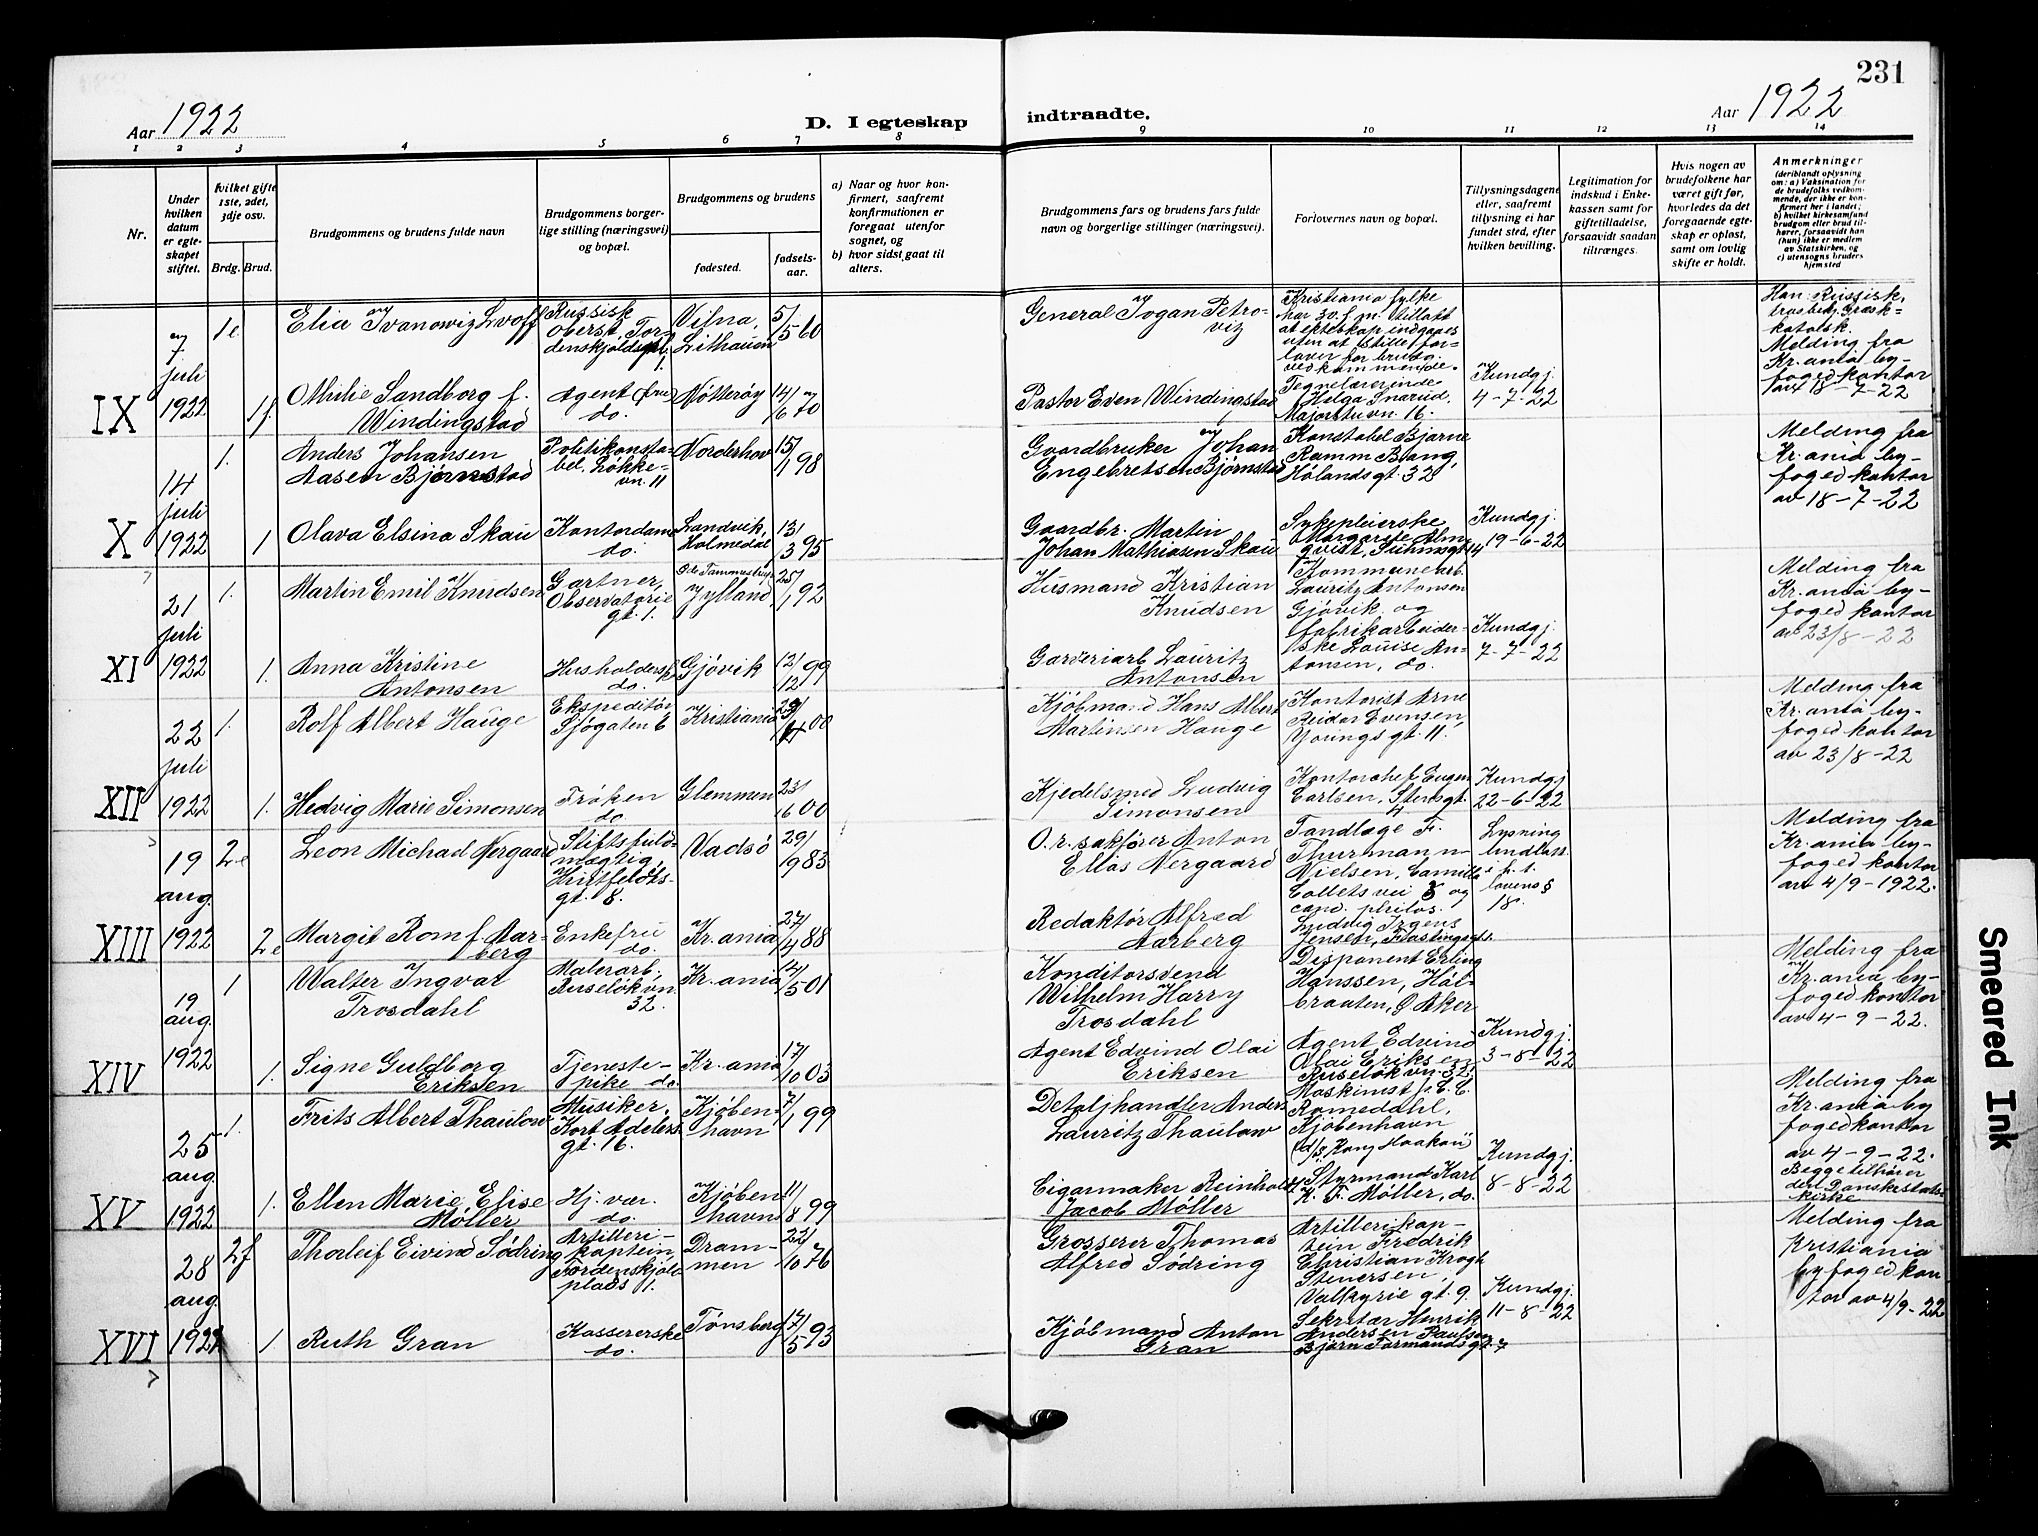 231
Aar 1922
D. I egteskap
indtraadte.
Aar 1922
1 2 3 4 5 6 7 8 9 10 11 12 13 14
Nr.
Under
hvilken
datum
er egte-
skapet
stiftet.
hvilket gifte
1ste, 2det,
3dje osv.
Brdg. Brud.
Brudgommens og brudens fulde navn
Brudgommens borger-
lige stilling (næringsvei)
og bopæl.
Brudgommens og brudens
fødested.
fødsels-
aar.
a) Naar og hvor kon-
firmert, saafremt
konfirmationen er
foregaat utenfor
sognet, og
b) hvor sidst gaat til
alters.
Brudgommens fars og brudens fars fulde
navn og borgerlige stillinger (næringsvei).
Forlovernes navn og bopæl.
Tillysningsdagene
eller, saafremt
tillysning ei har
fundet sted, efter
hvilken bevilling.
Legitimation for
indskud i Enke-
kassen samt for
giftetilladelse,
forsaavidt saadan
tiltrænges.
Hvis nogen av
brudefolkene har
været gift før,
hvorledes da det
foregaaende egte-
skap er opløst,
samt om lovlig
skifte er holdt.
Anmerkninger
(deriblandt oplysning
om: a) Vaksination for
de brudefolks vedkom-
mende, der ikke er kon-
firmert her i landet;
b) hvilket kirkesamfund
brudgom eller brud til-
hører, forsaavidt han
(hun) ikke er medlem
av Statskirken, og
c) utensogns bruders
hjemsted
IX
7
juli
1922
1e
Elia Ivanowiz Lvoff
Russisk
oberst Tor-
denskjoldspl.
1.
Vilna,
Lithauen
5/5 60
General Iogan Petro-
viz
Kristiania fylke
har 30. f. m. tillatt
at ekteskap indgaaes
uten at stille for-
lover for brudg.
vedkommende.
Han: Russisk,
trosbekj. Græsk-
katolsk.
Melding fra
Kr.ania by-
fogedkontor
av 18-7-22
1f.
Othilie Sandborg f.
Windingstad
Agent (frue)
do.
Nøtterøy
14/6 70
Pastor Even Windingstad
Tegnelærerinde
Helga Snarud,
Majorstuvn. 16.
Kundgj.
4-7-22
X
14
juli
1922
1.
Anders Johansen
Aasen Bjørnstad
Politikonsta-
bel. Løkke-
vn. 11
Norderhov
15/1 98
Gaardbruker Johan
Engebretsen Bjørnstad
Konstabel Bjarne
Ramm Bang,
Hølandsgt. 32
Melding fra
Kr.ania by-
fogedkontor
av 18-7-22
1
Olava Elsina Skau
Kontordame
do.
Landvik,
Holmedal
13/3 95
Gaardbr. Martin
Johan Mathiasen Skau
Sykepleierske
Margarete Alm-
qvist, Suhmsgt. 14
Kundgj.
19-6-22
XI
21
juli
1922
1.
Martin Emil Knudsen
Gartner,
Observatorie
gt. 1.
Jylland
25/1 92
Husmand Kristian
Knudsen
Kommunearb.
Lauritz Antonsen
Gjøvik og
fabrikarbeider-
ske Louise An-
tonsen, do.
Melding fra
Kr.ania by-
fogedkontor
av 23/8-22
1.
Anna Kristine
Antonsen
Husholdersk.
do.
Gjøvik
12/12 99
Garveriarb. Lauritz
Antonsen
Kundgj.
7-7-22
XII
22
juli
1922
1.
Rolf Albert Hauge
Ekspeditør
Sjøgaten 6
Kristiania
00
Kjøbmand Hans Albert
Martinsen Hauge
Kontorist Arne
Reidar Evensen,
Youngsgt. 11.
Melding fra
Kr.ania by-
fogedkontor
av 23/8-22
1.
Hedvig Marie Simonsen
Frøken
do.
Glemmen
23/6 00
Kjedelsmed Ludvig
Simonsen
Kontorchef Eugen
Carlsen, Stensgt.
4
Kundgj.
22-6-22
XIII
19
aug.
1922
2e
Leon Michael Nergaard
Stiftsfuld-
mægtig,
Huitfeldts-
gt. 8.
Vadsø
29/1 83
O.r.sakfører Anton
Elias Nergaard
Tandlæge F.
Thurmann-
Nielsen, Camilla
Colletsvei 8 og
cand. philos.
Ludvig Irgens
Jensen,
Lysning
undlatt
i h. t.
lovens §
18.
Melding fra
Kr.ania by-
fogedkontor
av 4/9-1922.
2e
Margit Rom f. Aar-
berg
Enkefru
do.
Kr.ania
27/4 88
Redaktør Alfred
Aarberg
XIV
19
aug.
1922
1
Walter Ingvar
Trosdahl
Malerarb.
Ruseløkvn.
32.
Kr.ania
12/5 01
Konditorsvend
Wilhelm Harry
Trosdahl
Disponent Erling
Hanssen, Høi-
braaten, Ø. Aker
Melding fra
Kr.ania by-
fogedkontor
av 4-9-22.
1.
Signe Guldborg
Eriksen
Tjeneste-
pike do.
Kr.ania
17/10 03
Agent Edvind Olai
Eriksen
Agent Edvind
Olai Eriksen
Ruseløkvn. 32.
Kundgj.
3-8-22
XV
25
aug.
1922
1.
Frits Albert Thaulow
Musiker,
Kort Adelers
gt. 16.
Kjøben-
havn
7/1 99
Detaljhandler Anders
Lauritz Thaulow
Maskinist J. C. C.
Romeddhl,
Kjøbenhavn
(d/s. Kong Haakon)
Melding fra
Kr.ania by
fogedkontor
av 4-9-22.
Begge tilhører
den Danske stats-
kirke
1.
Ellen Marie Elise
Møller
Hj. vær.
do.
Kjøben
havn
11/8 99
Cigarmaker Reinholdt
Jacob Møller
Styrmand Karl
K. F. Møller, do.
Kundgj.
8-8-22
XVI
28
aug.
1922
2f
Thorleif Eivind Sødring
Artilleri-
kaptein,
Tordenskjold
plads 1.
Dram-
men
22/10 76
Grosserer Thomas
Alfred Sødring
Artillerikap-
tein Fredrik
Christian Krogh
Stenersen,
Valkyriegt. 9.
Melding fra
Kristiania
byfogedkon
tor av 4/9-22
1
Ruth Gran
Kassererske
do.
Tønsberg
17/5 93
Kjøbmand Anton
Gran
Sekretær Henrik
Andersen Paulsen
Bjørn Farmandsgt. 7
Kundgj.
11-8-22
Smeared Ink